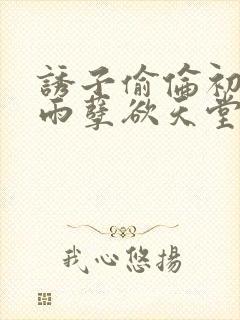 誘子偷倫初
雨孽欲天堂
我心悠揚